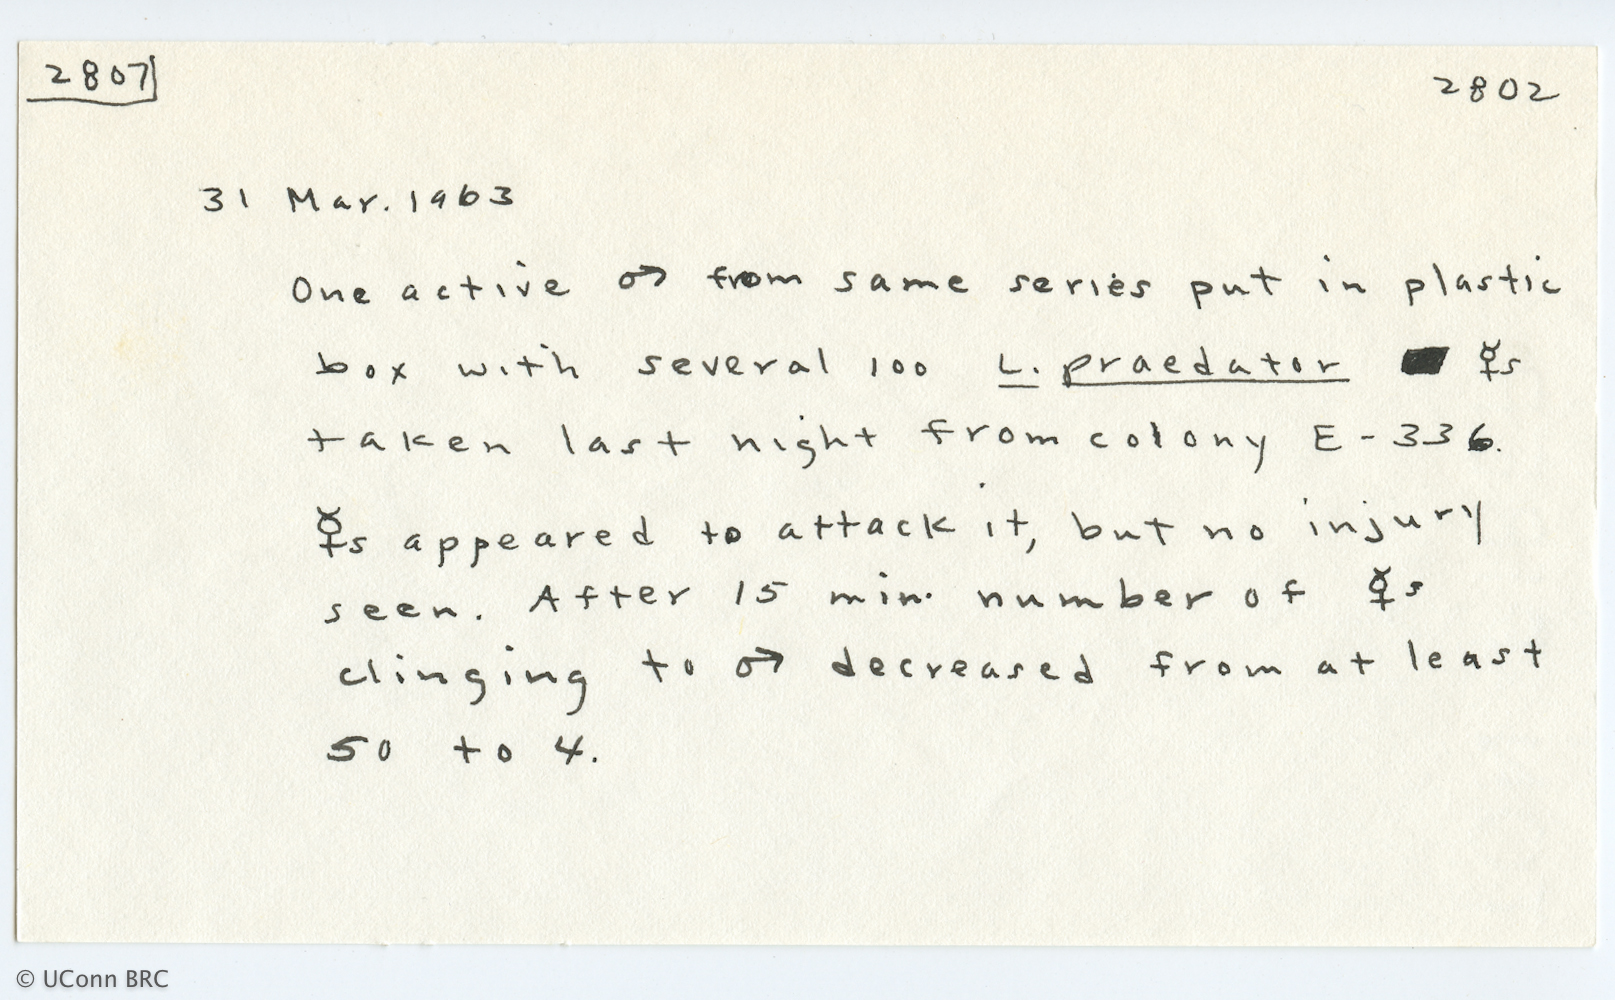 2807
2802
31 Mar. 1963
One active ♂ from same series put in plastic
box with several 100 L. praedator ☿s
taken last night from colony E-336.
☿s appeared to attack it, but no injury
seen. After 15 min. number of ☿s
clinging to ♂ decreased from at least
50 to 4.
© UConn BRC